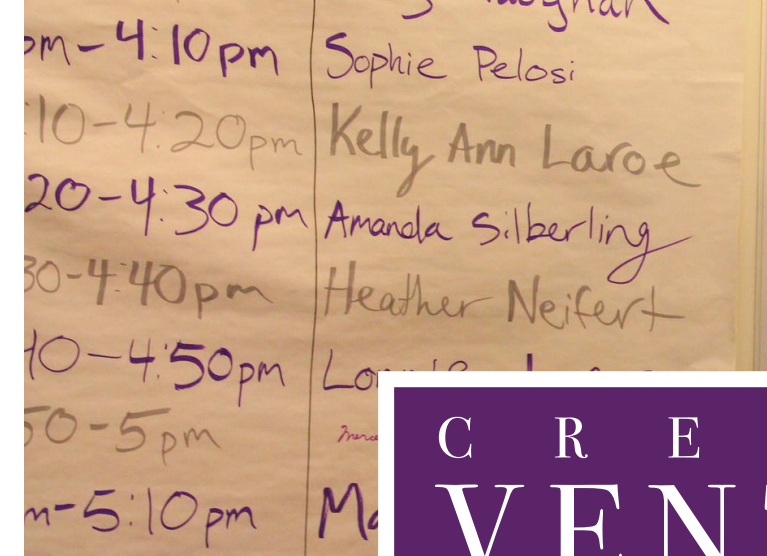 pm-4:10pm Sophie Pelosi
:10-4:20pm Kelly Ann Laroe
20-4:30 pm Amanda Silberling
30-4:40pm Heather Neifert
40-4:50pm
50-5pm
m-5:10pm Ma
C R E
VEN